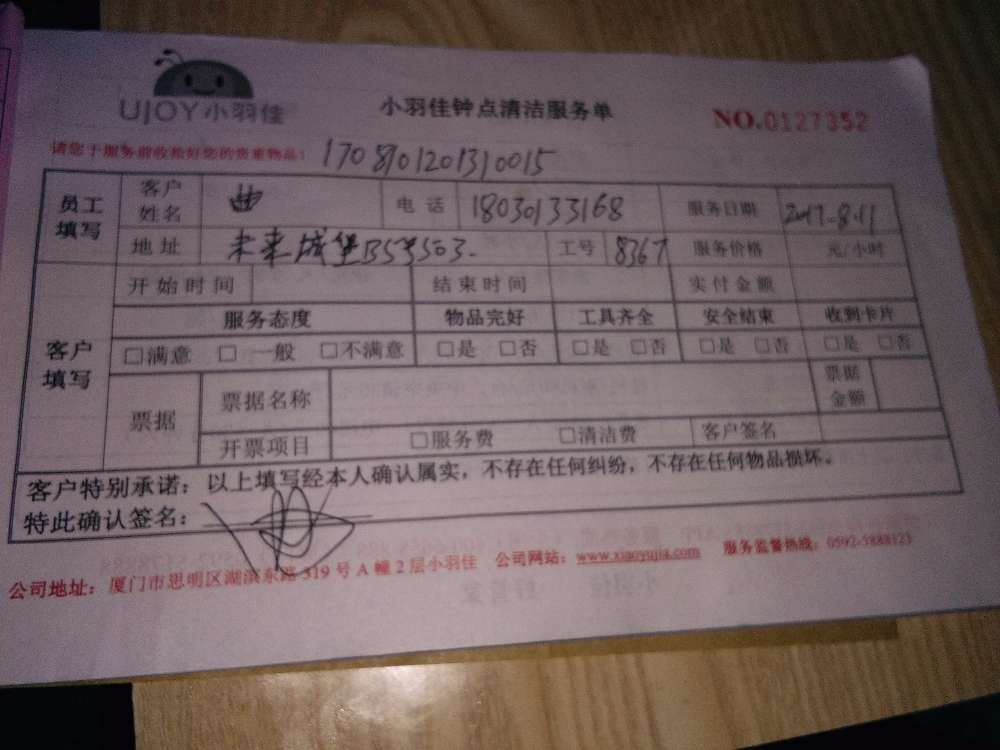 UJOY小羽佳 小羽佳钟点清洁服务单 NO.0127352
请您于服务前收拾好您的贵重物品! 1708101201310015
员工填写 客户姓名 曲 电话 18030133168 服务日期 2017-8-11
地址 未来城堡B5号503. 工号 8367 服务价格 元/小时
客户填写 开始时间 结束时间 实付金额
服务态度 物品完好 工具齐全 安全结束 收到卡片
□满意 □一般 □不满意 □是 □否 □是 □否 □是 □否 □是 □否
票据 票据名称 票据金额
开票项目 □服务费 □清洁费 客户签名
客户特别承诺:以上填写经本人确认属实,不存在任何纠纷,不存在任何物品损坏。
特此确认签名:
公司地址:厦门市思明区湖滨东路319号A幢2层小羽佳 公司网站:www.xiaoyujia.com 服务监督热线:0592-5888123